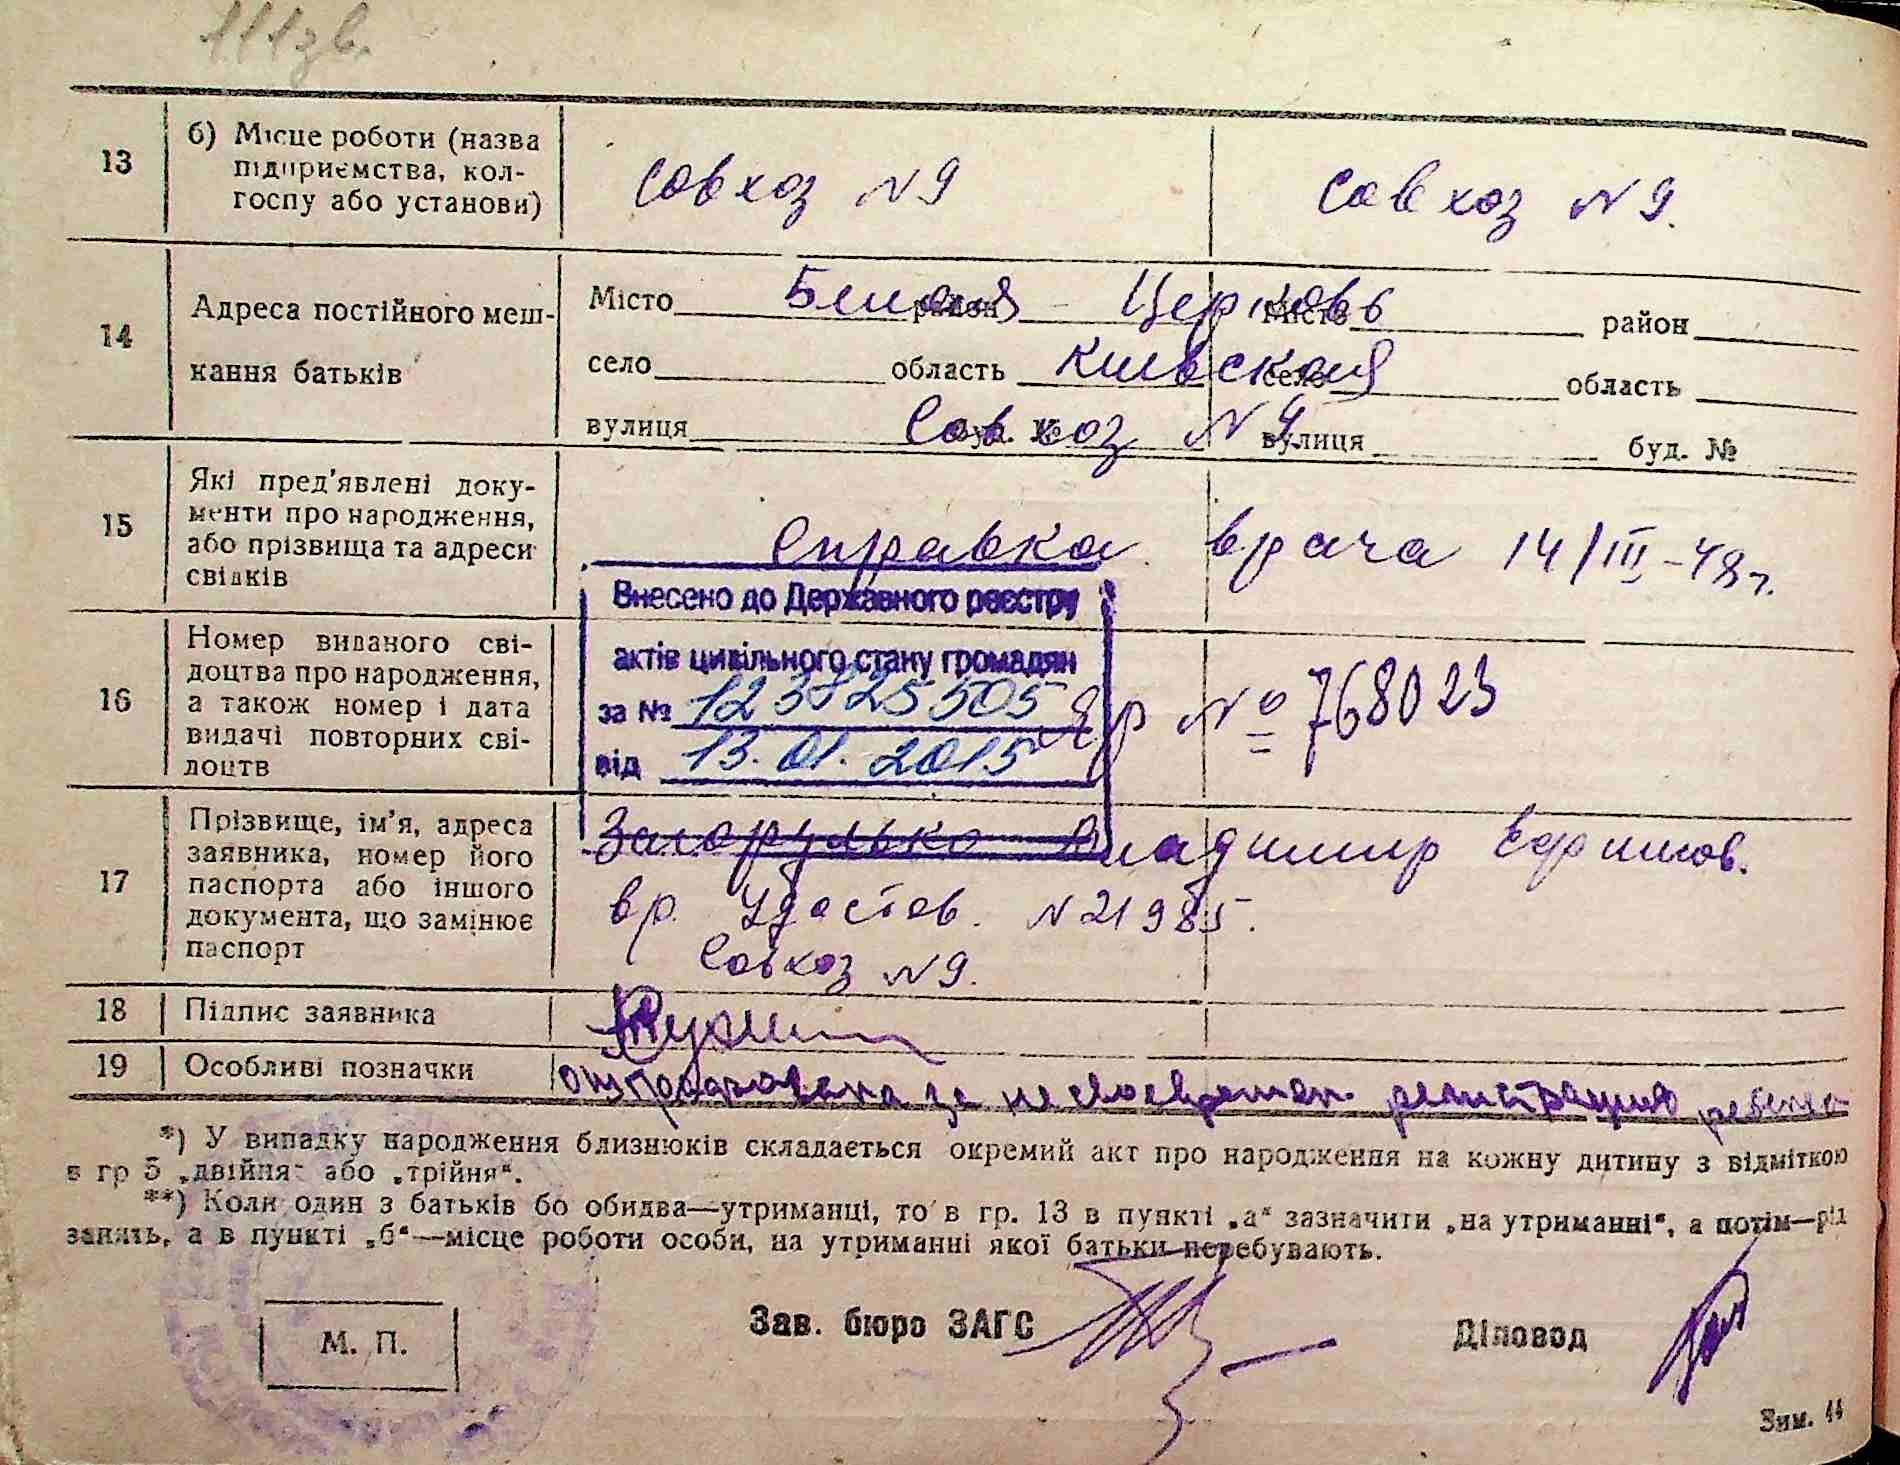 111зв.
13 б) Місце роботи (назва підприємства, кол-госпу або установи) совхоз N9 совхоз N9.
14 Адреса постійного меш-кання батьків
Місто Белая район - Церковь Місто район
село область Киевская село область
вулиця Совхоз N9 буд. № вулиця буд. №
15 Які пред'явлені доку-
менти про народження,
або прізвища та адреси
свідків
Справка врача 14/III-48г.
Внесено до Державного реєстру
актів цивільного стану громадян
за № 123825505
від 13.01.2015
16 Номер виданого сві-
доцтва про народження,
а також номер і дата
видачі повторних сві-
доцтв
№ 768023
17 Прізвище, ім'я, адреса
заявника, номер його
паспорта або іншого
документа, що замінює
паспорт
Загорулько Владимир Ефимов.
вр. Удостов. N21985.
Совхоз N9.
18 Підпис заявника
19 Особливі позначки оштрафована за несвоевремен. регистрацию ребенка
*) У випадку народження близнюків складається окремий акт про народження на кожну дитину з відміткою
в гр 5 „двійня“ або „трійня“.
**) Коли один з батьків бо обидва—утриманці, то в гр. 13 в пункті „а“ зазначити „на утриманні“, а потім—рід
занять, а в пункті „б“—місце роботи особи, на утриманні якої батьки перебувають.
М. П.
Зав. бюро ЗАГС
Діловод
Зим. 44